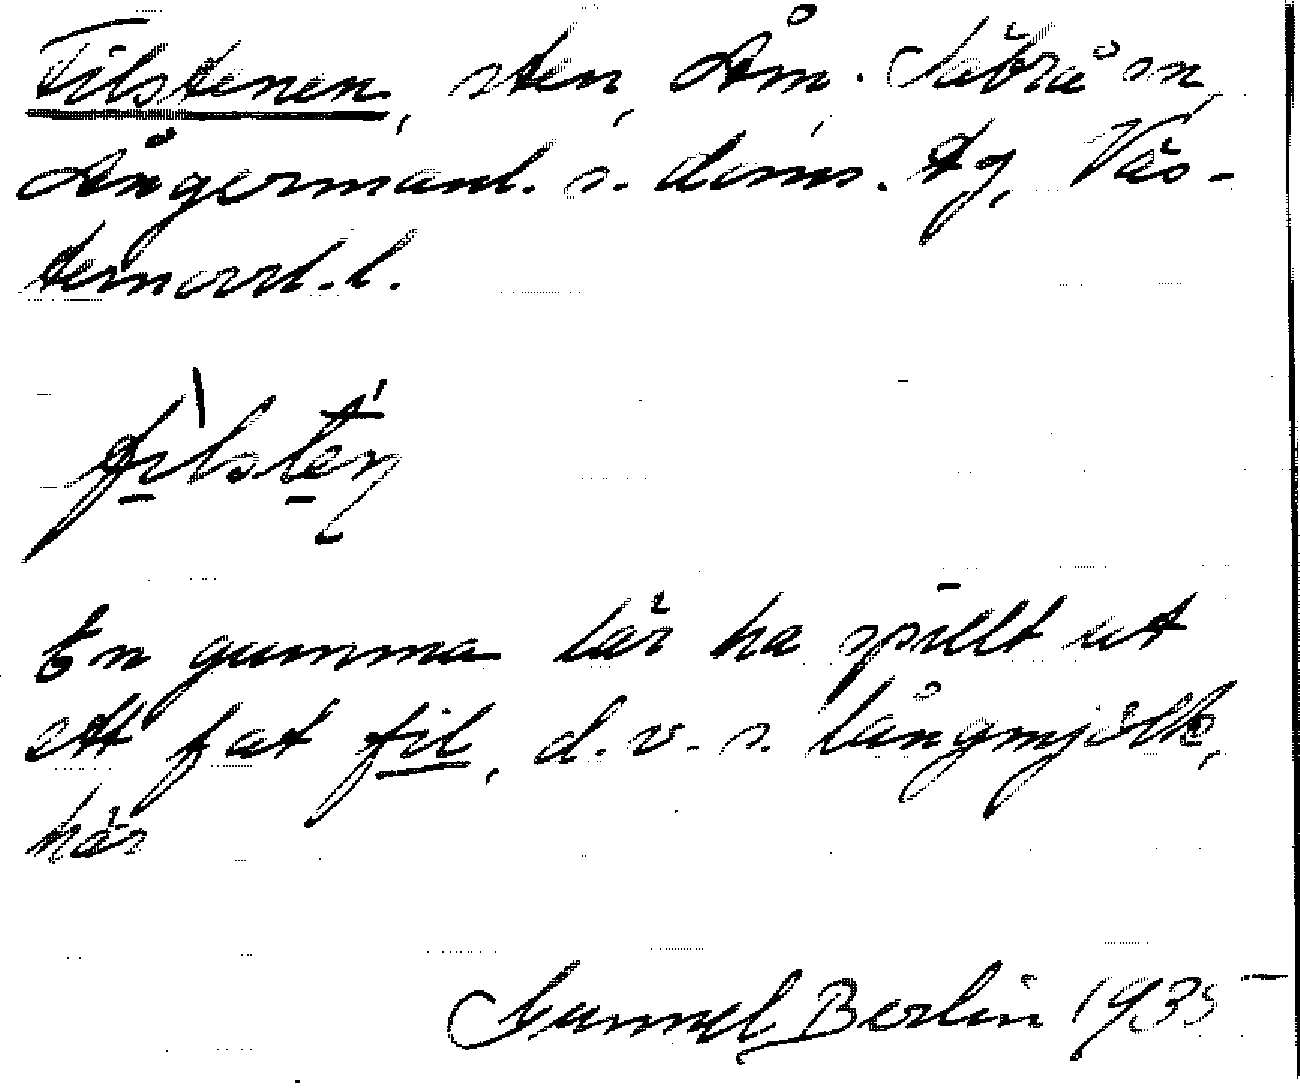 Filstenen, sten, Åm. Säbrå sn,
Ångermanl. s. doms. tg, Väs-
ternorrl. l.
filstén
En gumma lär ha spillt ut
ett fat fil, d. v. s. långmjölk,
här
Gunnel Berlin 1935